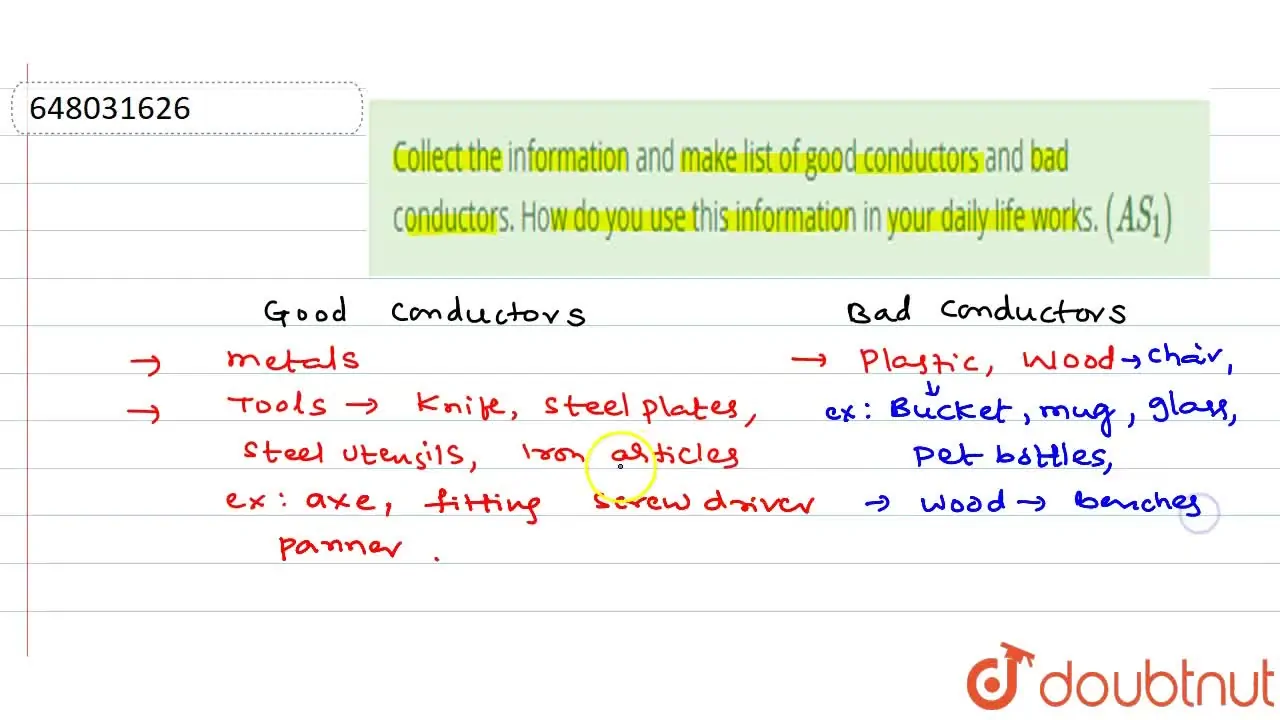 648031626
Collect the information and make list of good conductors and bad
conductors. How do you use this information in your daily life works. (AS₁)
Good conductors
Bad conductors
→ metals
→ Plastic, wood → chair,
→ Tools → Knife, steel plates,
ex: Bucket, mug, glass,
steel utensils, Iron articles
pet bottles,
ex: axe, fitting screw driver
→ wood → benches
panner.
doubtnut